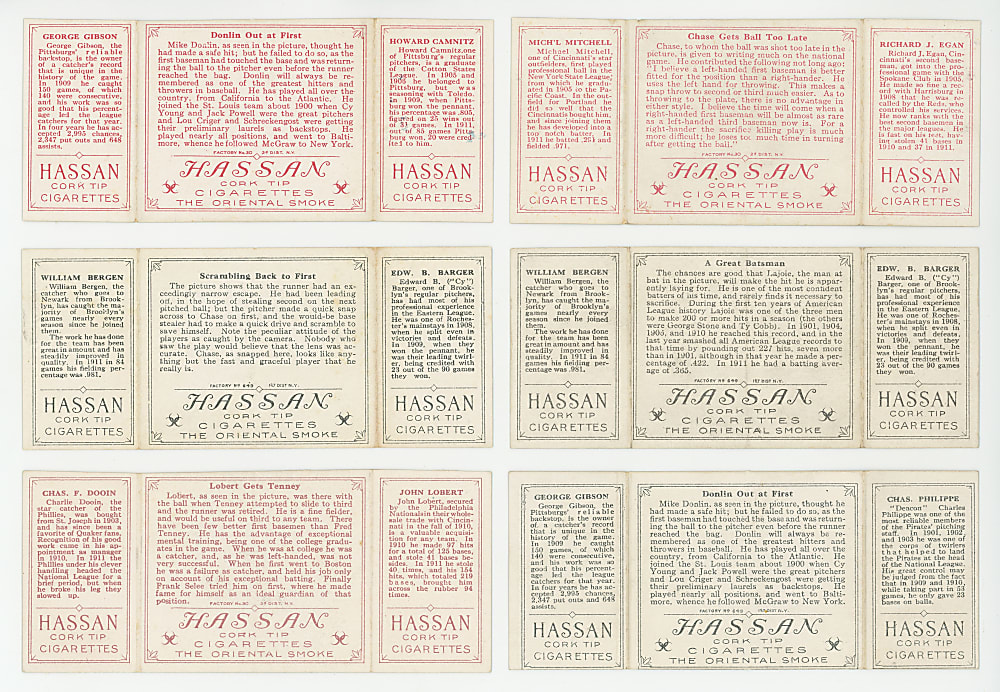 GEORGE GIBSON
George Gibson, the
Pittsburgs' reliable
backstop, is the owner
of a catcher's record
that is unique in the
history of the game.
In 1909 he caught
150 games, of which
140 were consecutive,
and his work was so
good that his percent-
age led the league
catchers for that year.
In four years he has ac-
cepted 2,995 chances,
2,347 put outs and 648
assists.
HASSAN
CORK TIP
CIGARETTES
Donlin Out at First
Mike Donlin, as seen in the picture, thought he
had made a safe hit; but he failed to do so, as the
first baseman had touched the base and was return-
ing the ball to the pitcher even before the runner
reached the bag. Donlin will always be re-
membered as one of the greatest hitters and
throwers in baseball. He has played all over the
country, from California to the Atlantic. He
joined the St. Louis team about 1900 when Cy
Young and Jack Powell were the great pitchers
and Lou Criger and Schreckengost were getting
their preliminary laurels as backstops. He
played nearly all positions, and went to Balti-
more, whence he followed McGraw to New York.
FACTORY No. 30 2D DIST. N.Y.
HASSAN
CORK TIP
CIGARETTES
THE ORIENTAL SMOKE
HOWARD CAMNITZ
Howard Camnitz, one
of Pittsburg's regular
pitchers, is a graduate
of the Cotton States
League. In 1905 and
1905 he belonged to
Pittsburg, but was
seasoning with Toledo.
In 1909, when Pitts-
burg won the pennant,
his percentage was .805,
figured on 25 wins out
of 31 games. In 1911,
out of 85 games Pitts-
burg won, 20 were cred-
ited to him.
HASSAN
CORK TIP
CIGARETTES
MICH'L MITCHELL
Michael Mitchell,
one of Cincinnati's star
outfielders, first played
professional ball in the
New York State League,
from which he gradu-
ated in 1905 to the Pa-
cific Coast. In the out-
field for Portland he
did so well that the
Cincinnatis bought him,
and since joining them
he has developed into a
top notch batter. In
1911 he batted .291 and
fielded .971.
HASSAN
CORK TIP
CIGARETTES
Chase Gets Ball Too Late
Chase, to whom the ball was shot too late in the
picture, is given to writing much on the national
game. He contributed the following not long ago:
"I believe a left-handed first baseman is better
fitted for the position than a right-hander. He
uses the left hand for throwing. This makes a
snap throw to second or third much easier. As to
throwing to the plate, there is no advantage in
either style. I believe the time will come when a
right-handed first baseman will be almost as rare
as a left-handed third baseman now is. For a
right-hander the sacrifice killing play is much
more difficult; he loses too much time in turning
after getting the ball."
FACTORY No. 30 2D DIST. N.Y.
HASSAN
CORK TIP
CIGARETTES
THE ORIENTAL SMOKE
RICHARD J. EGAN
Richard J. Egan, Cin-
cinnati's second base-
man, got into the pro-
fessional game with the
Spokane Club in 1905.
He made so fine a rec-
ord with Harrisburg in
1908 that he was re-
called by the Reds, who
controlled his services.
He now ranks with the
best second basemen in
the major leagues. He
is fast on his feet, hav-
ing stolen 41 bases in
1910 and 37 in 1911.
HASSAN
CORK TIP
CIGARETTES
WILLIAM BERGEN
William Bergen, the
catcher who goes to
Newark from Brook-
lyn, has caught the ma-
jority of Brooklyn's
games nearly every
season since he joined
them.
The work he has done
for the team has been
great in amount and has
steadily improved in
quality. In 1911 in 84
games his fielding per-
centage was .981.
HASSAN
CORK TIP
CIGARETTES
Scrambling Back to First
The picture shows that the runner had an ex-
ceedingly narrow escape. He had been leading
off, in the hope of stealing second on the next
pitched ball; but the pitcher made a quick snap
across to Chase on first, and the would-be base
stealer had to make a quick drive and scramble to
save himself. Note the peculiar attitude of the
players as caught by the camera. Nobody who
saw the play would believe that the lens was ac-
curate. Chase, as snapped here, looks like any-
thing but the fast and graceful player that he
really is.
FACTORY No 649 1ST DIST N.Y.
HASSAN
CORK TIP
CIGARETTES
THE ORIENTAL SMOKE
EDW. B. BARGER
Edward B. ("Cy")
Barger, one of Brook-
lyn's regular pitchers,
has had most of his
professional experience
in the Eastern League.
He was one of Roches-
ter's mainstays in 1908,
when he split even in
victories and defeats.
In 1909, when they
won the pennant, he
was their leading twirl-
er, being credited with
23 out of the 90 games
they won.
HASSAN
CORK TIP
CIGARETTES
WILLIAM BERGEN
William Bergen, the
catcher who goes to
Newark from Brook-
lyn, has caught the ma-
jority of Brooklyn's
games nearly every
season since he joined
them.
The work he has done
for the team has been
great in amount and has
steadily improved in
quality. In 1911 in 84
games his fielding per-
centage was .981.
HASSAN
CORK TIP
CIGARETTES
A Great Batsman
The chances are good that Lajoie, the man at
bat in the picture, will make the hit he is appar-
ently laying for. He is one of the most confident
batters of all time, and rarely finds it necessary to
sacrifice. During the first ten years of American
League history Lajoie was one of the three men
to make 200 or more hits in a season (the others
were George Stone and Ty Cobb). In 1901, 1904,
1905, and 1910 he reached this record, and in the
last year smashed all American League records to
that time by pounding out 227 hits, seven more
than in 1901, although in that year he made a per-
centage of .422. In 1911 he had a batting aver-
age of .365.
FACTORY No 649 1ST DIST N.Y.
HASSAN
CORK TIP
CIGARETTES
THE ORIENTAL SMOKE
EDW. B. BARGER
Edward B. ("Cy")
Barger, one of Brook-
lyn's regular pitchers,
has had most of his
professional experience
in the Eastern League.
He was one of Roches-
ter's mainstays in 1908,
when he split even in
victories and defeats.
In 1909, when they
won the pennant, he
was their leading twirl-
er, being credited with
23 out of the 90 games
they won.
HASSAN
CORK TIP
CIGARETTES
CHAS. F. DOOIN
Charlie Dooin, the
star catcher of the
Phillies, was bought
from St. Joseph in 1903,
and has since been a
favorite of Quaker fans.
Recognition of his good
work came in his ap-
pointment as manager
in 1910. In 1911 the
Phillies under his clever
handling headed the
National League for a
brief period, but when
he broke his leg they
slowed up.
HASSAN
CORK TIP
CIGARETTES
Lobert Gets Tenney
Lobert, as seen in the picture, was there with
the ball when Tenney attempted to slide to third
and the runner was retired. He is a fine fielder,
and would be useful on third to any team. There
have been few better first basemen than Fred
Tenney. He has the advantage of exceptional
mental training, being one of the college gradu-
ates in the game. When he was at college he was
a catcher, and, as he was left-handed, was not
very successful. When he first went to Boston
he was a failure as catcher, and held his job only
on account of his exceptional batting. Finally
Frank Selee tried him on first, where he made
fame for himself as an ideal guardian of that
position.
FACTORY No. 30 2D DIST. N.Y.
HASSAN
CORK TIP
CIGARETTES
THE ORIENTAL SMOKE
JOHN LOBERT
John Lobert, secured
by the Philadelphia
Nationals in their whole-
sale trade with Cincin-
nati in the fall of 1910,
is a valuable acquisi-
tion for any team. In
1910 he made 97 hits
for a total of 125 bases,
and stole 41 bases be-
sides. In 1911 he stole
40 times, and his 154
hits, which totaled 219
bases, brought him
across the rubber 94
times.
HASSAN
CORK TIP
CIGARETTES
GEORGE GIBSON
George Gibson, the
Pittsburgs' reliable
backstop, is the owner
of a catcher's record
that is unique in the
history of the game.
In 1909 he caught
150 games, of which
140 were consecutive,
and his work was so
good that his percent-
age led the league
catchers for that year.
In four years he has ac-
cepted 2,995 chances,
2,347 put outs and 648
assists.
HASSAN
CORK TIP
CIGARETTES
Donlin Out at First
Mike Donlin, as seen in the picture, thought he
had made a safe hit; but he failed to do so, as the
first baseman had touched the base and was return-
ing the ball to the pitcher even before the runner
reached the bag. Donlin will always be re-
membered as one of the greatest hitters and
throwers in baseball. He has played all over the
country, from California to the Atlantic. He
joined the St. Louis team about 1900 when Cy
Young and Jack Powell were the great pitchers
and Lou Criger and Schreckengost were getting
their preliminary laurels as backstops. He
played nearly all positions, and went to Balti-
more, whence he followed McGraw to New York.
FACTORY No 649 1ST DIST N.Y.
HASSAN
CORK TIP
CIGARETTES
THE ORIENTAL SMOKE
CHAS. PHILIPPE
"Deacon" Charles
Philippe was one of the
most reliable members
of the Pirates' pitching
staff. In 1901, 1902
and 1903 he was one of
the corps of twirlers
that helped to land
the Pirates at the head
of the National League.
His great control may
be judged from the fact
that in 1909 and 1910,
while taking part in 53
games, he only gave 23
bases on balls.
HASSAN
CORK TIP
CIGARETTES